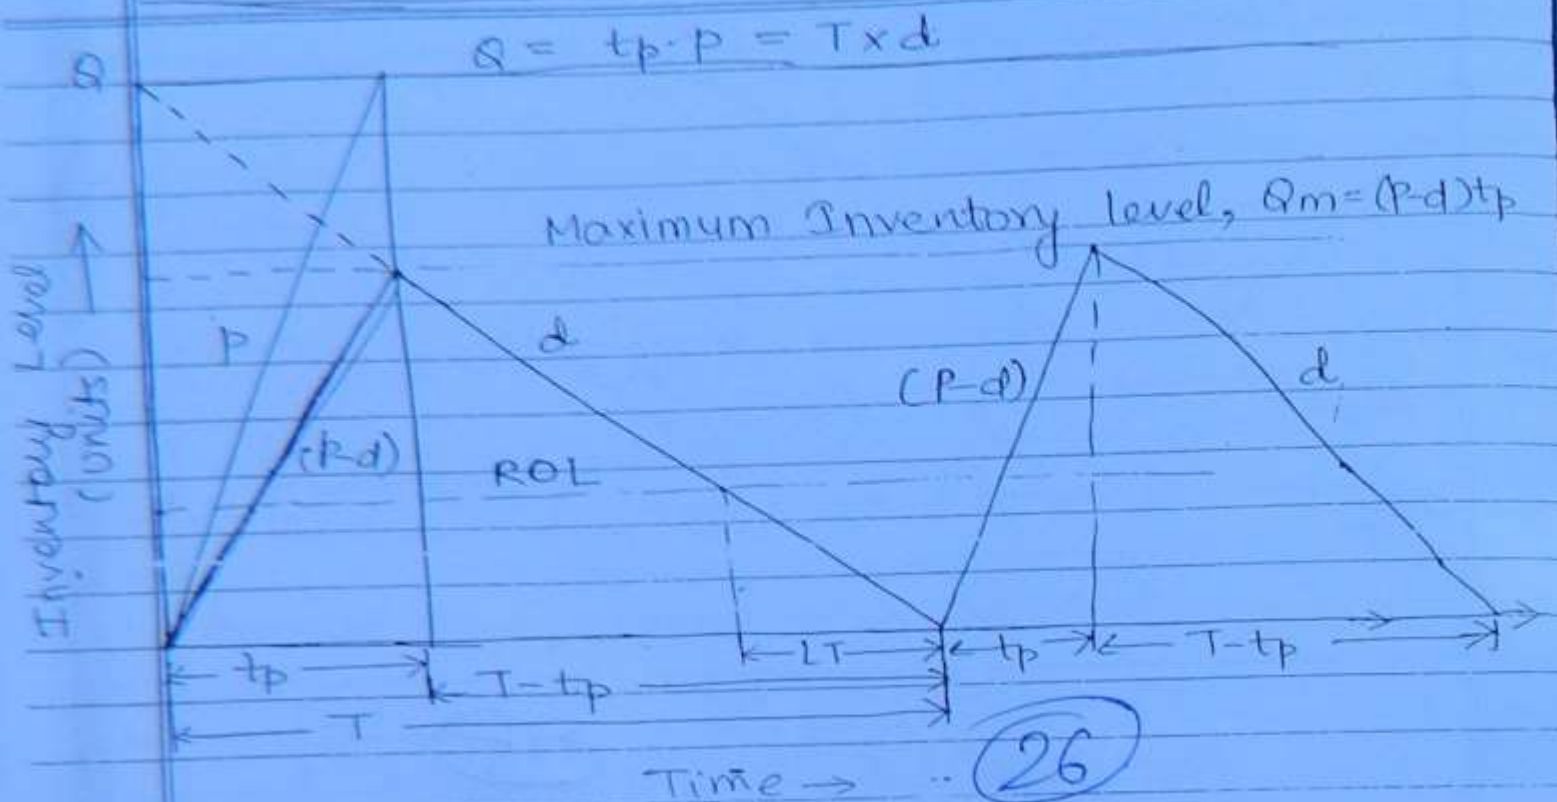 Q = tp·p = T x d
Q
Maximum Inventory level, Qm=(P-d)tp
Inventory Level
(Units)
p
d
(P-d)
d
(P-d)
ROL
tp
LT
tp
T-tp
T-tp
T
26
Time →